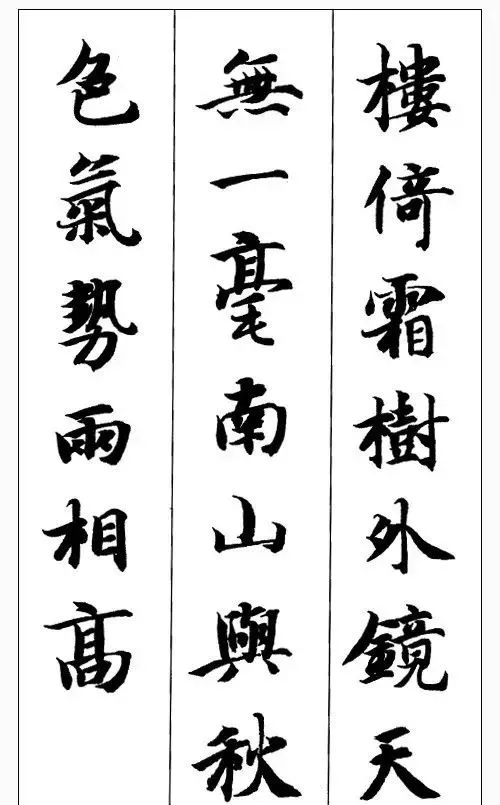 樓倚霜樹外鏡天
無一毫南山與秋
色氣勢兩相高